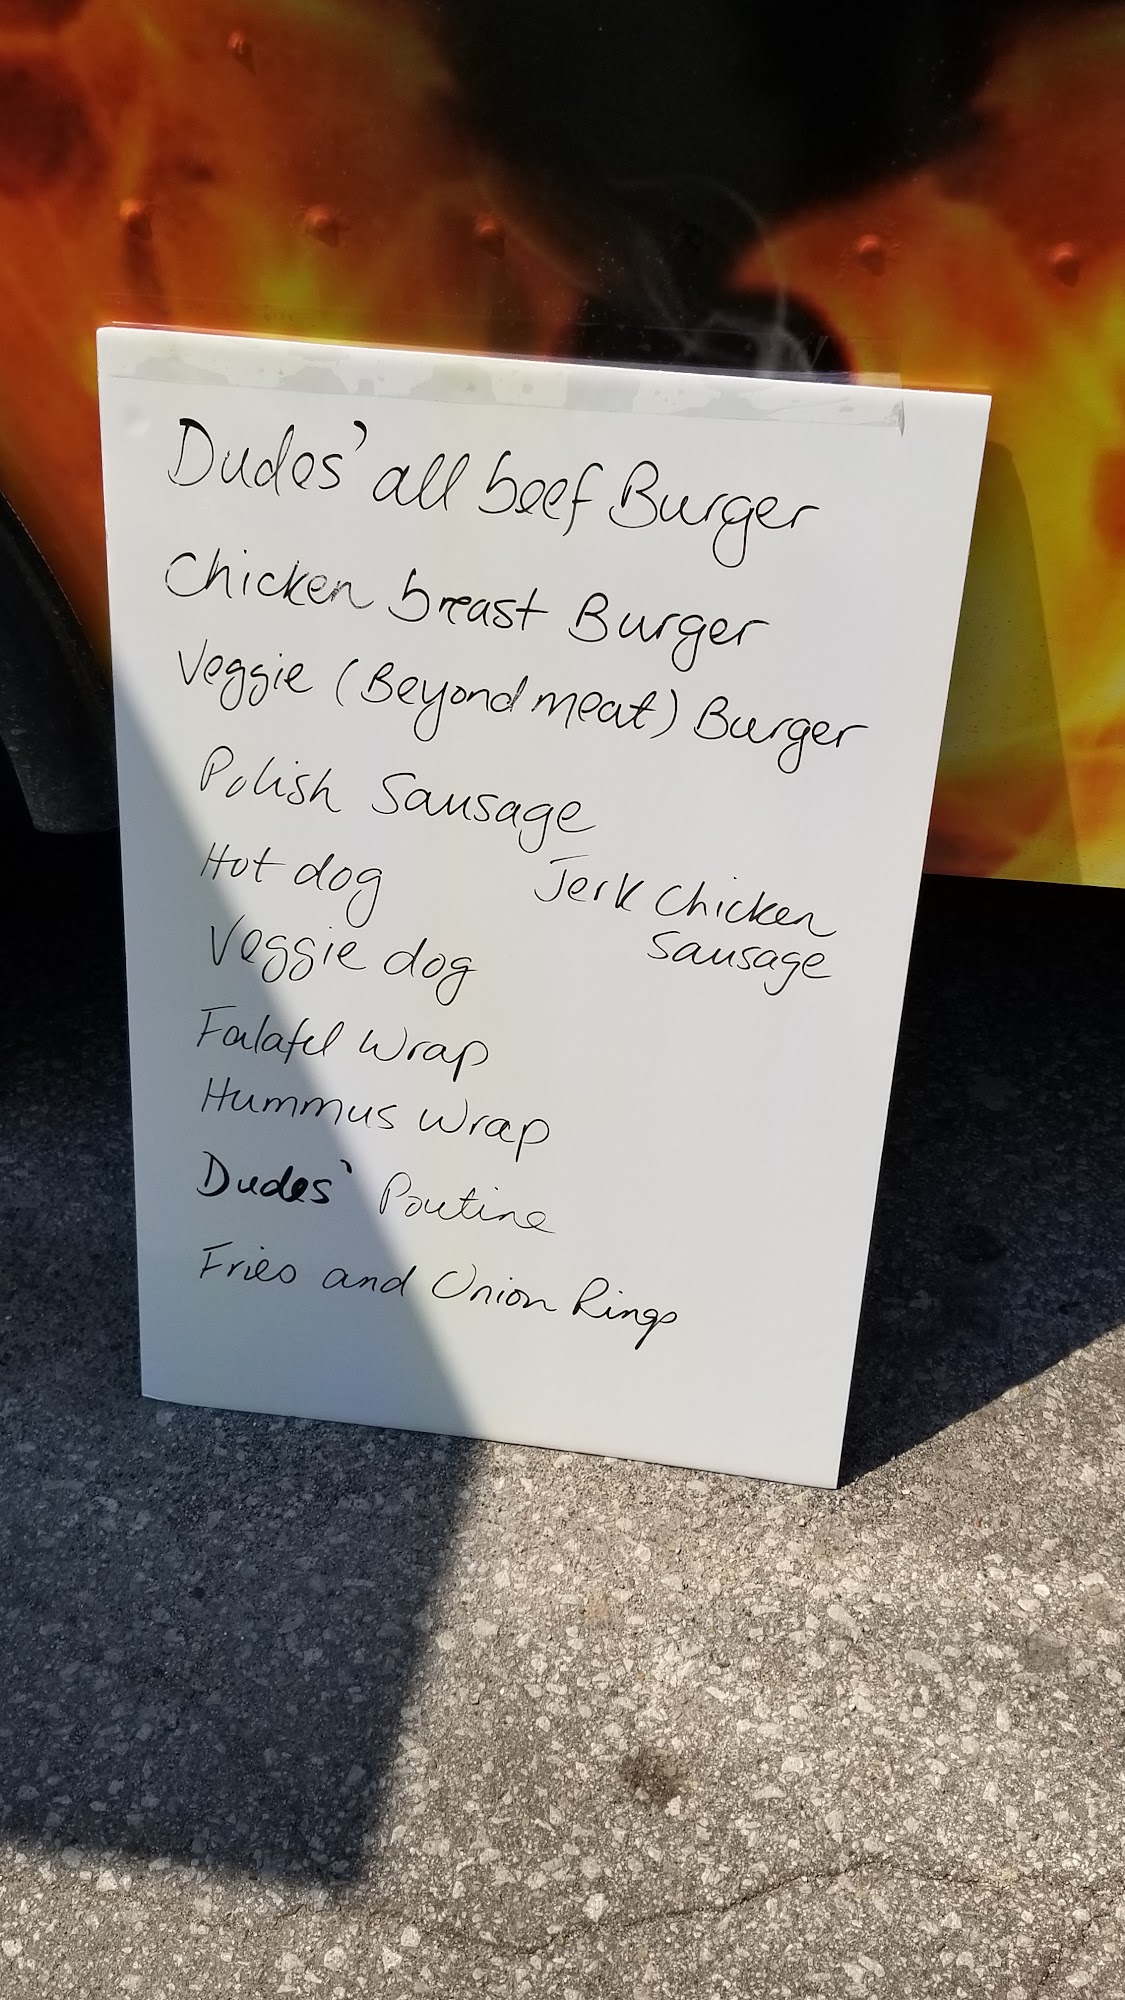 Dudes' all beef Burger
Chicken breast Burger
Veggie (Beyond meat) Burger
Polish Sausage
Hot dog
Jerk Chicken
Sausage
Veggie dog
Falafel Wrap
Hummus Wrap
Dudes' Poutine
Fries and Onion Rings